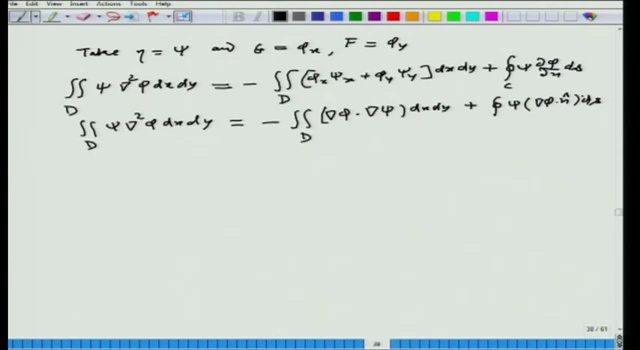 File Edit View Insert Actions Tools Help
Take η = Ψ and G = φₓ, F = φᵧ
∬_D Ψ ∇²φ dx dy = - ∬_D [φₓ Ψₓ + φᵧ Ψᵧ] dx dy + ∮_C Ψ ∂φ/∂n ds
∬_D Ψ ∇²φ dx dy = - ∬_D (∇φ · ∇Ψ) dx dy + ∮ Ψ (∇φ · n̂) ds
38 / 61
38